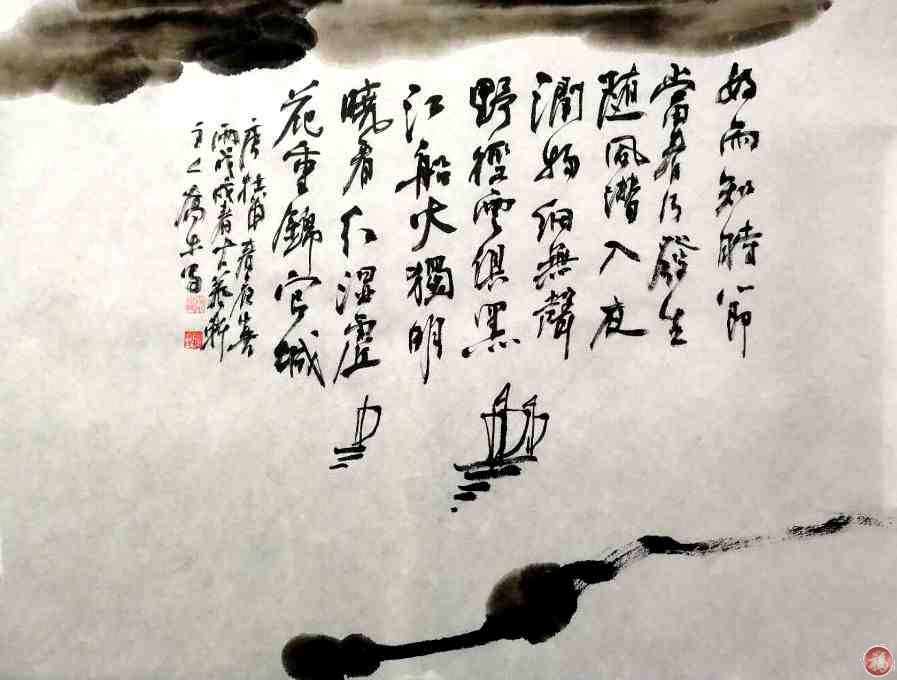 好雨知時節
當春乃發生
随風潜入夜
潤物細無聲
野徑雲俱黑
江船火獨明
曉看红湿處
花重錦官城
唐杜甫春夜喜
雨戊戌春
福